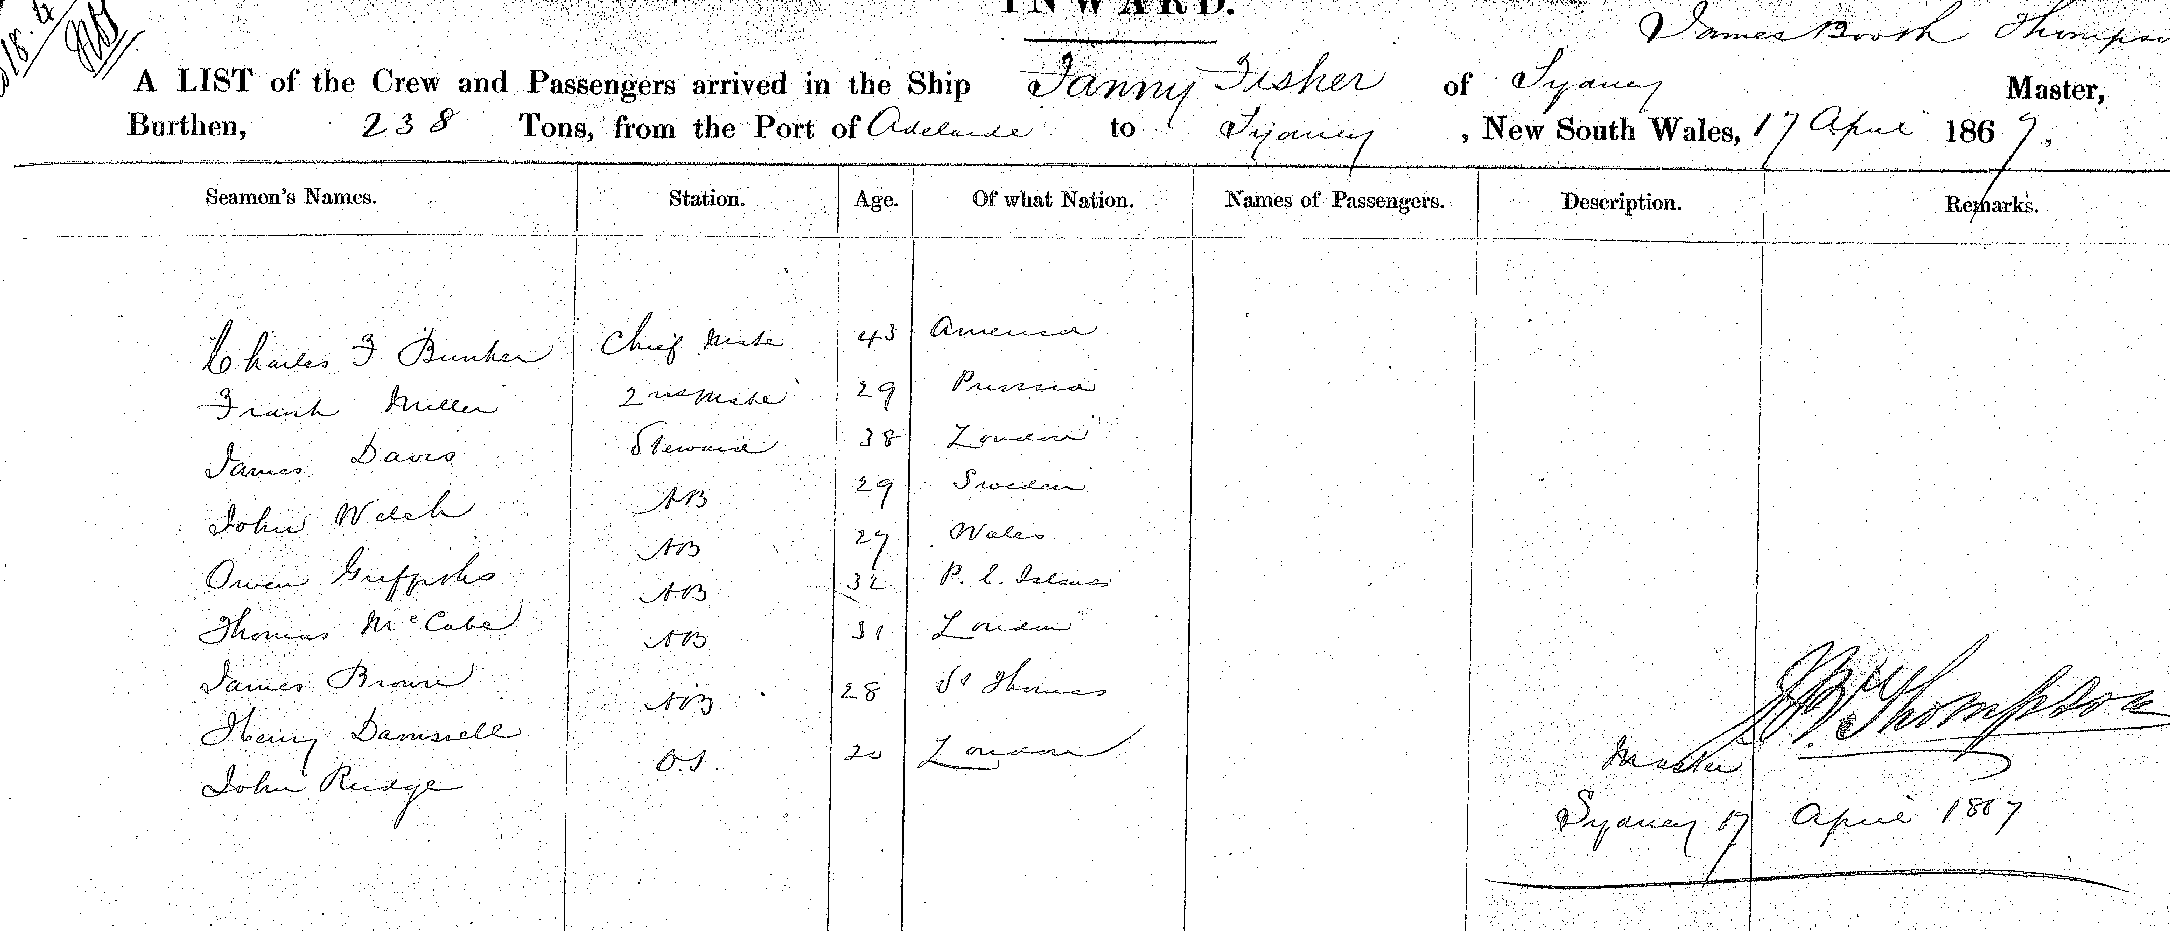 INWARD.
James Booth Thompso
A LIST of the Crew and Passengers arrived in the Ship Fanny Fisher of Sydney Master,
Burthen, 238 Tons, from the Port of Adelaide to Sydney, New South Wales, 17 April 1867.
Seamon's Names. Station. Age. Of what Nation. Names of Passengers. Description. Remarks.
Charles F Bunker Chief Mate 43 America
Frank Miller 2nd Mate 29 Prussia
James Davis Steward 38 London
John Welsh AB 29 Sweden
Owen Griffiths AB 27 Wales
Thomas McCabe AB 32 P. E. Island
James Brown AB 31 London
Henry Damssell AB 28 St Thomas
John Rudge O.S. 20 London
J B Thompson
Master
Sydney 17 April 1867